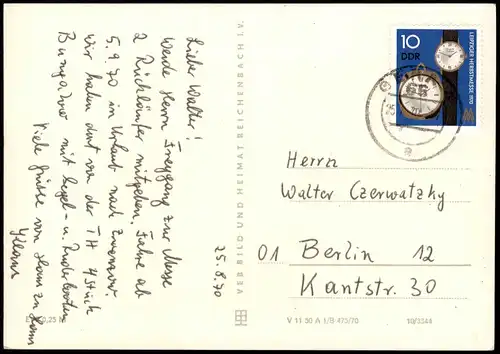 Lieber Walter!
Werde Herrn Freygang zur Messe
2 Rückläufer mitgeben. Fahre ab
5.9.70 in Urlaub nach
wir haben dort von der TH 4 Stück
Bungalows mit Segel- u. Ruderbooten
Viele Grüße von Haus zu Haus
25.8.70
VEB BILD UND HEIMAT REICHENBACH I.V.
V 11 50 A 1/B 475/70
10/3344
10
DDR
LEIPZIGER HERBSTMESSE 1970
Herrn
Walter Czerwatzky
01 Berlin 12
Kantstr. 30